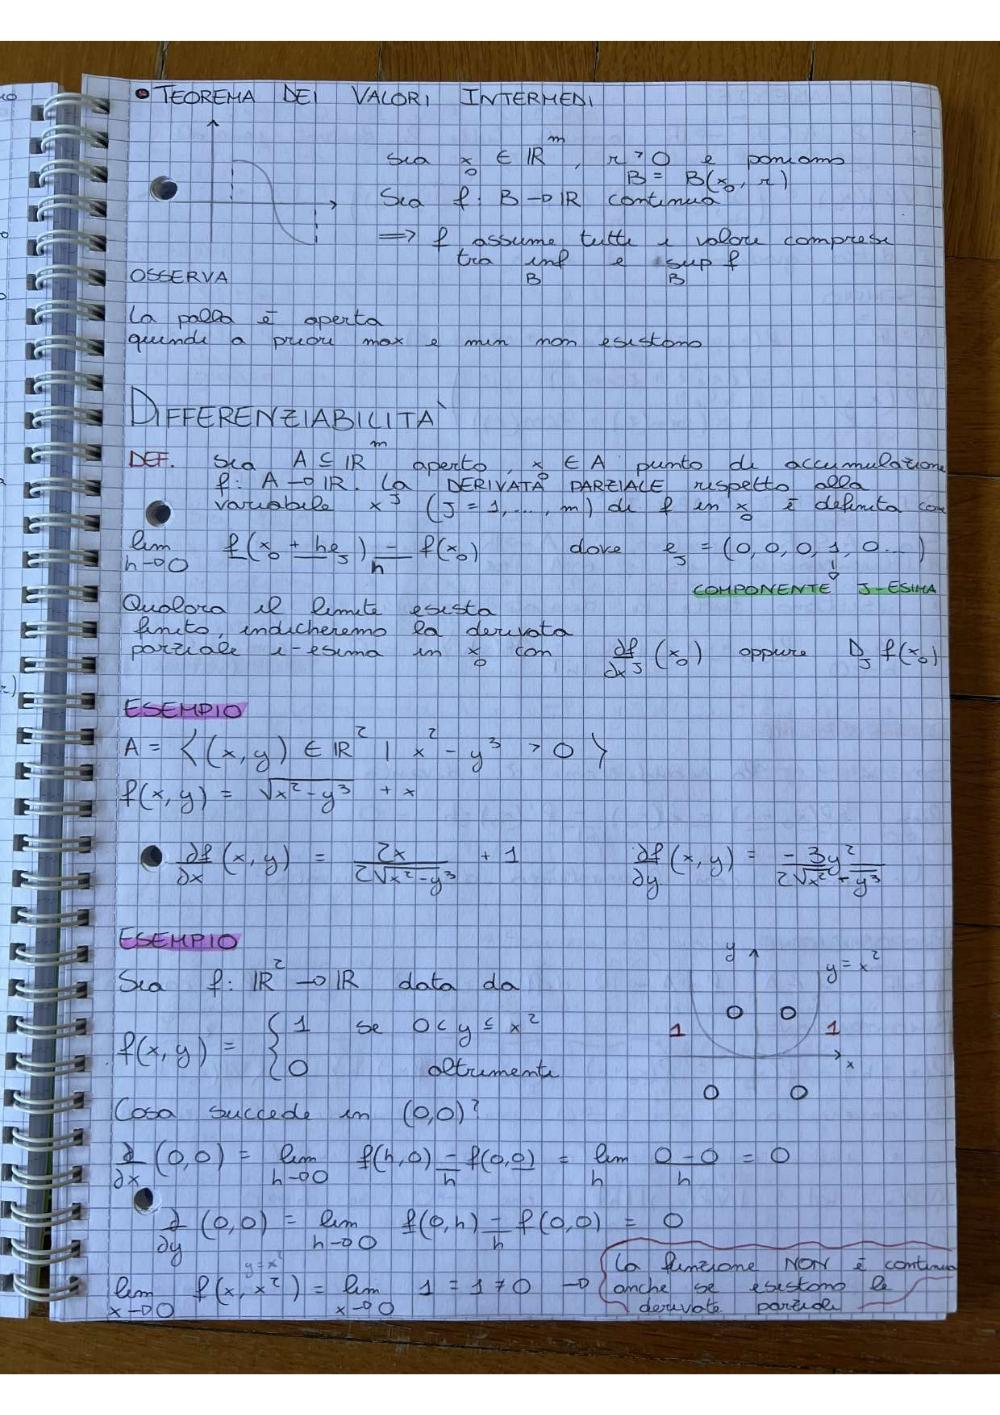 • TEOREMA DEI VALORI INTERMEDI
Sia x₀ ∈ ℝᵐ, r > 0 e poniamo
B = B(x₀, r)
Sia f: B → ℝ continua
⟹ f assume tutti i valori compresi
tra inf e sup f
B B
OSSERVA
La palla è aperta
quindi a priori max e min non esistono
DIFFERENZIABILITÀ
DEF. Sia A ⊆ ℝᵐ aperto, x₀ ∈ A punto di accumulazione
f: A → ℝ. La DERIVATA PARZIALE rispetto alla
variabile xʲ (J = 1, ..., m) di f in x₀ è definita con
lim h→0 f(x₀ + heⱼ) - f(x₀) / h dove eⱼ = (0, 0, 0, 1, 0...)
COMPONENTE J-ESIMA
Qualora il limite esista
finito, indicheremo la derivata
parziale i-esima in x₀ con ∂f/∂xʲ (x₀) oppure Dⱼ f(x₀)
ESEMPIO
A = {(x, y) ∈ ℝ² | x² - y³ > 0}
f(x, y) = √(x² - y³) + x
∂f/∂x (x, y) = 2x / 2√(x² - y³) + 1 ∂f/∂y (x, y) = -3y² / 2√(x² - y³)
ESEMPIO
Sia f: ℝ² → ℝ data da
f(x, y) = { 1 se 0 < y ≤ x²
0 altrimenti
y
y = x²
0 0
1 1
x
0 0
Cosa succede in (0,0)?
∂/∂x (0,0) = lim h→0 f(h,0) - f(0,0) / h = lim h 0 - 0 / h = 0
∂/∂y (0,0) = lim h→0 f(0,h) - f(0,0) / h = 0
y = x²
lim x→0 f(x, x²) = lim x→0 1 = 1 ≠ 0 →
La funzione NON è continua
anche se esistono le
derivate parziali